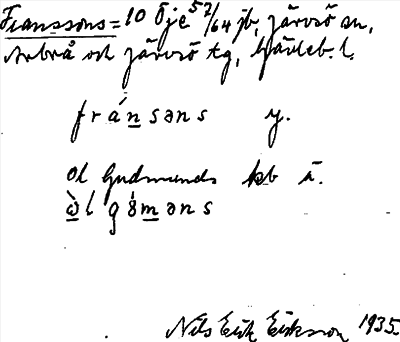 Franssons = 10 Öje 5 2/64 jb, Järvsö sn,
Arbrå och Järvsö tg, Gävleb. l.
fránsəns y.
Ol Gudmunds kb ä.
ὼl gŏ́məns
Nils Erik Eriksson 1935.